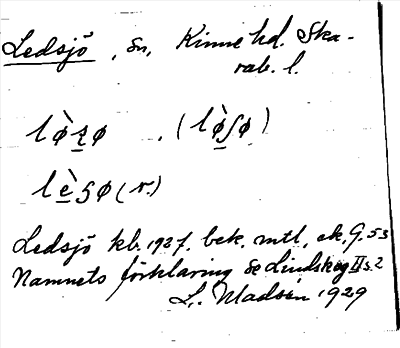 Ledsjö, sn, Kinne hd. Ska-
rab. l.
lø̀ʂø . (lø̀ʃø)
lèʂø (r.)
Ledsjö kb. 1927. bek. mtl, ek. 9.53
Namnets förklaring se Lindskog II s. 2
L. Madsén 1929